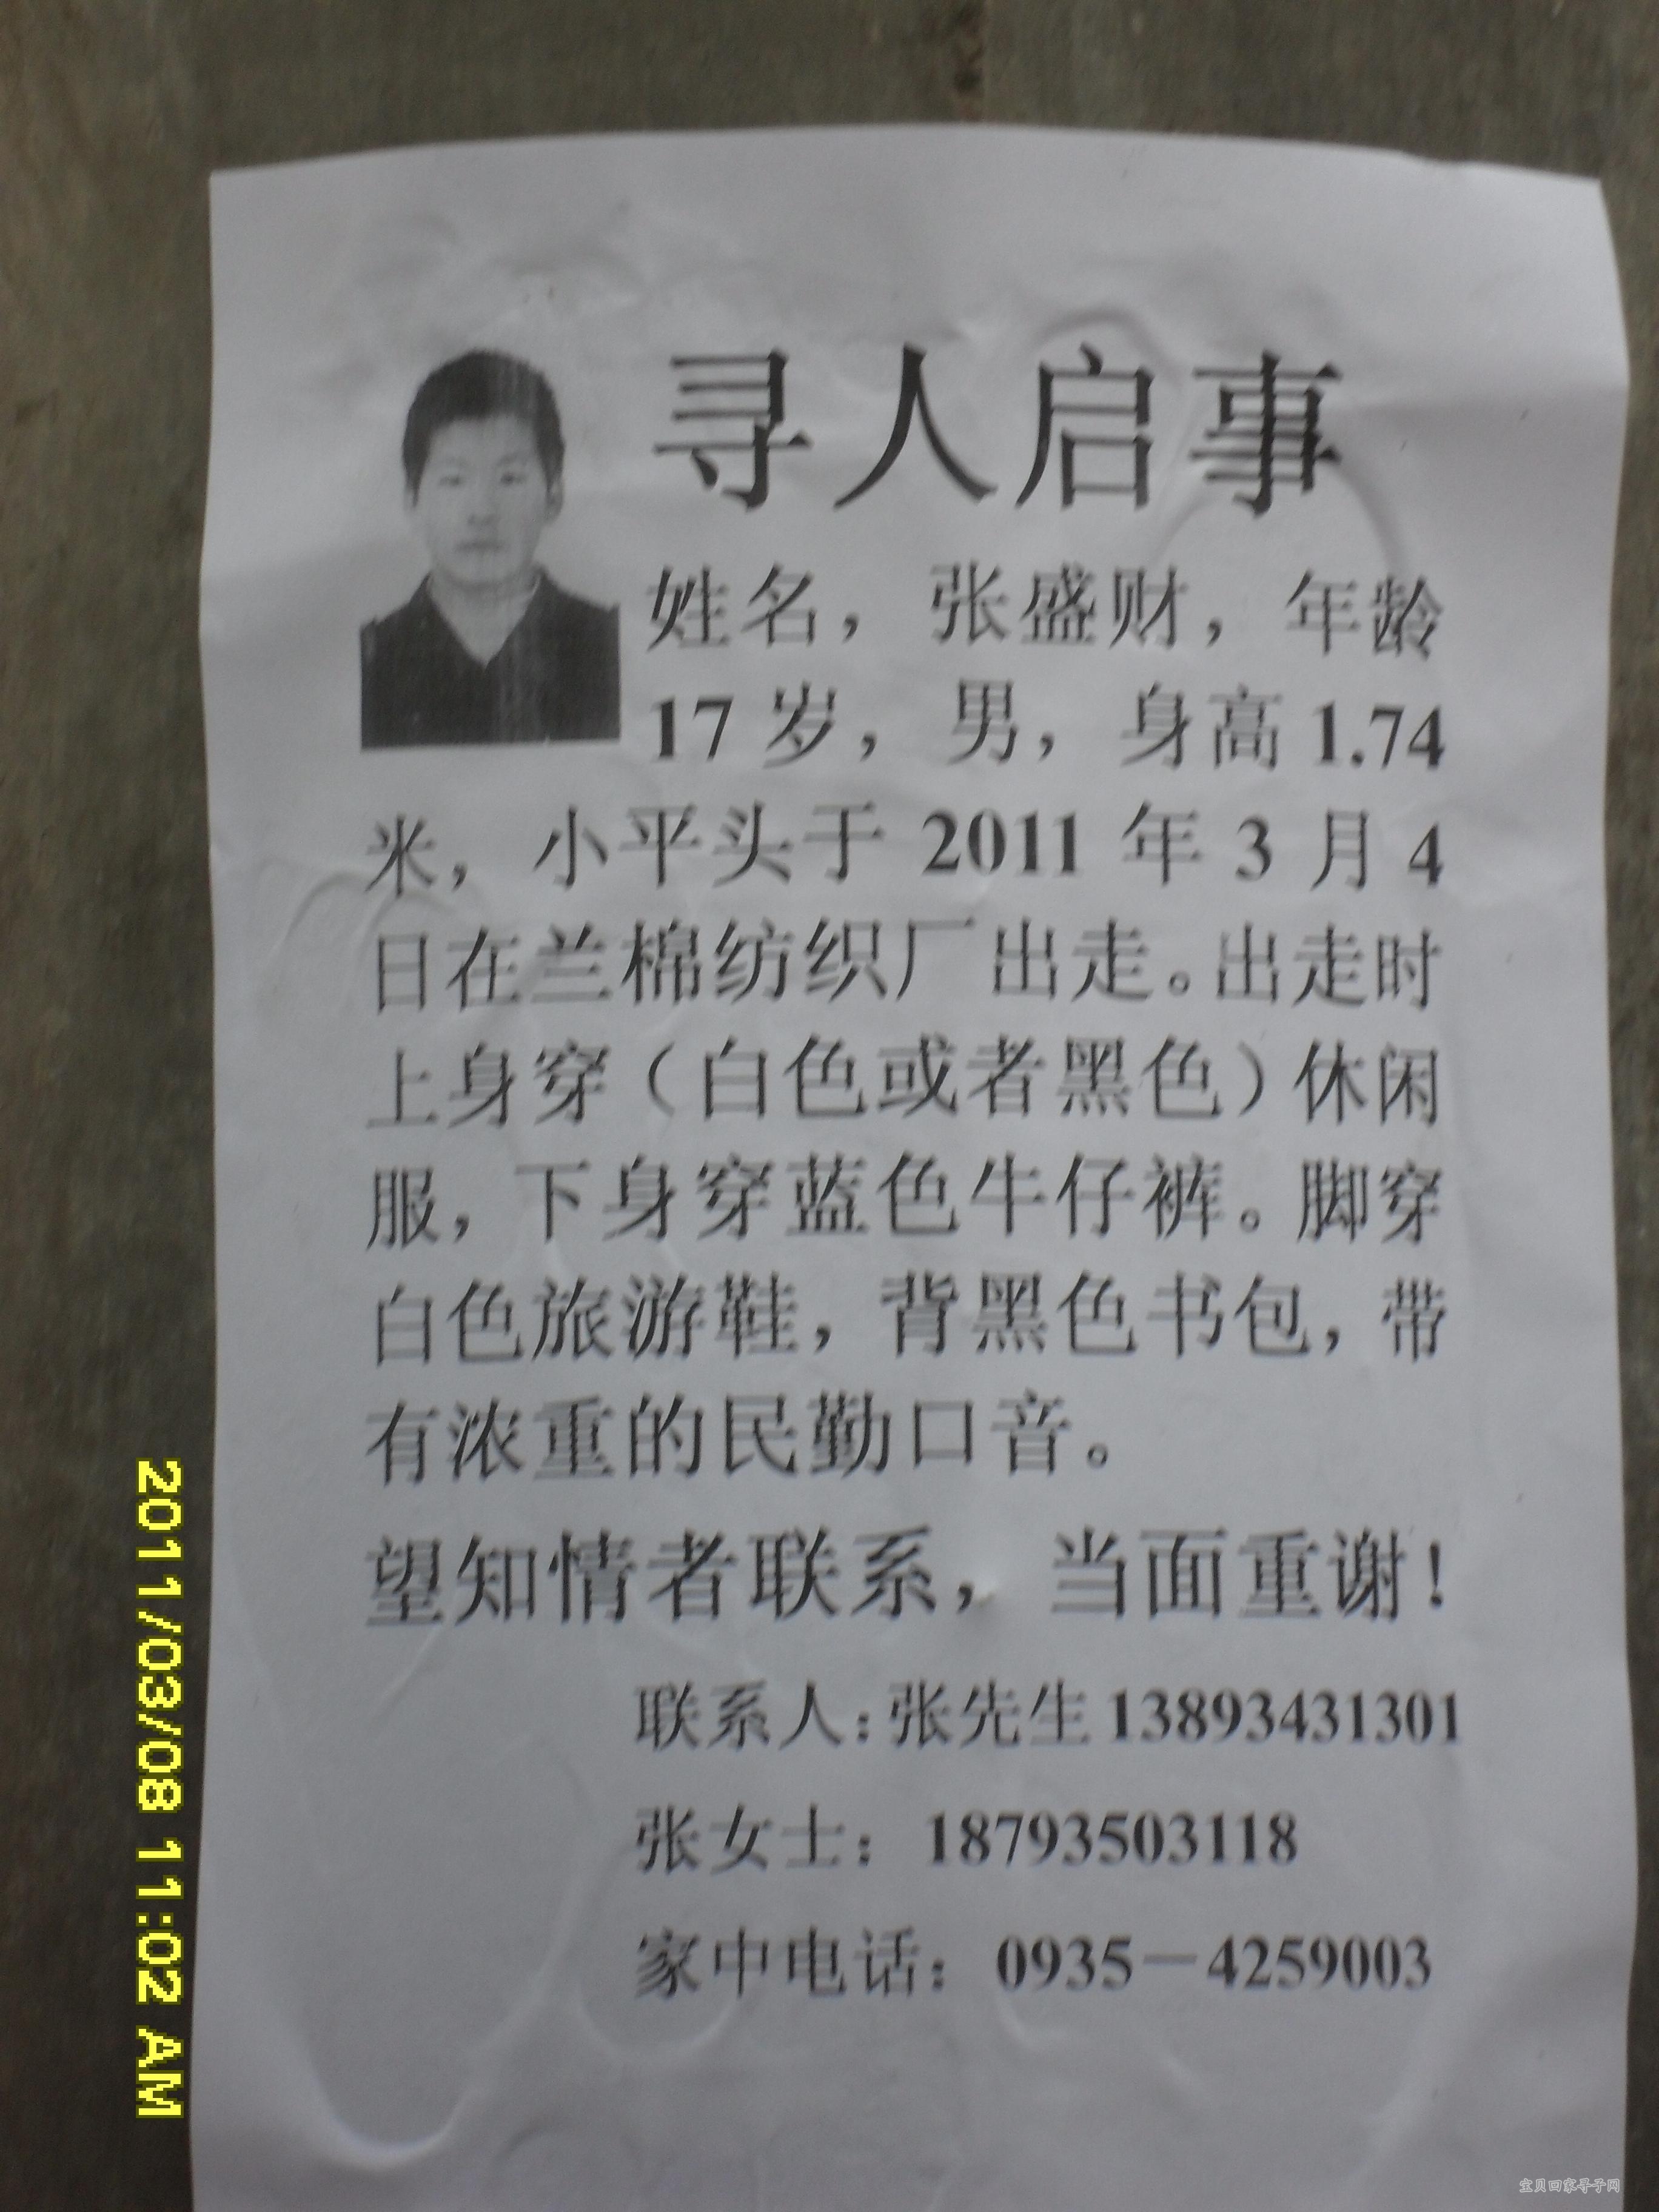 寻人启事
姓名，张盛财，年龄
17岁，男，身高1.74
米，小平头于 2011 年 3 月 4
日在兰棉纺织厂出走。出走时
上身穿（白色或者黑色）休闲
服，下身穿蓝色牛仔裤。脚穿
白色旅游鞋，背黑色书包，带
有浓重的民勤口音。
望知情者联系，当面重谢！
联系人：张先生13893431301
张女士：18793503118
家中电话：0935－4259003
2011/03/08 11:02 AM
宝贝回家寻子网